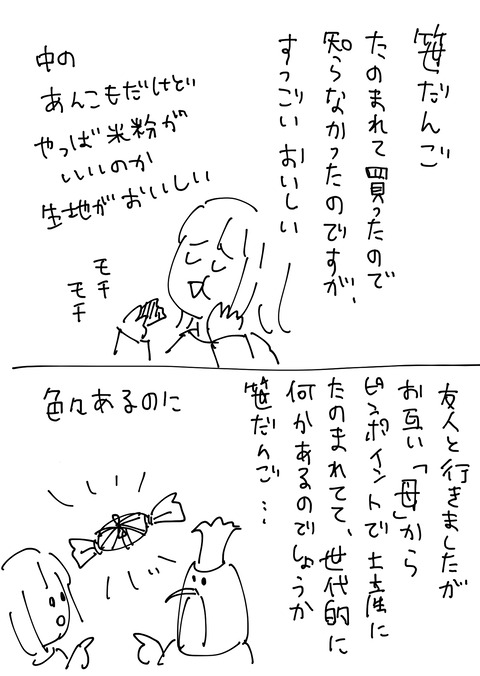 笹だんご
たのまれて買ったので
知らなかったのですが、
すっごいおいしい
中の
あんこもだけど
やっぱ米粉が
いいのか
生地がおいしい
モチ
モチ
友人と行きましたが
お互い「母」から
ピンポイントで土産に
たのまれてて、世代的に
何かあるのでしょうか
笹だんご…
色々あるのに